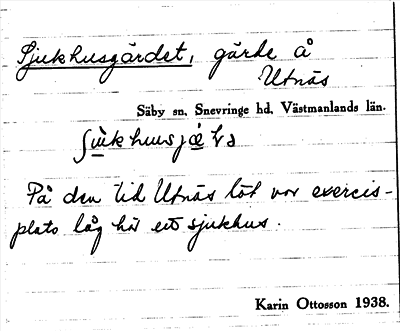 Sjukhusgärdet, gärde å
Utnäs
Säby sn. Snevringe hd. Västmanlands län.
På den tid Utnäs löt var exercis-
plats låg här ett sjukhus.
Karin Ottosson 1938.